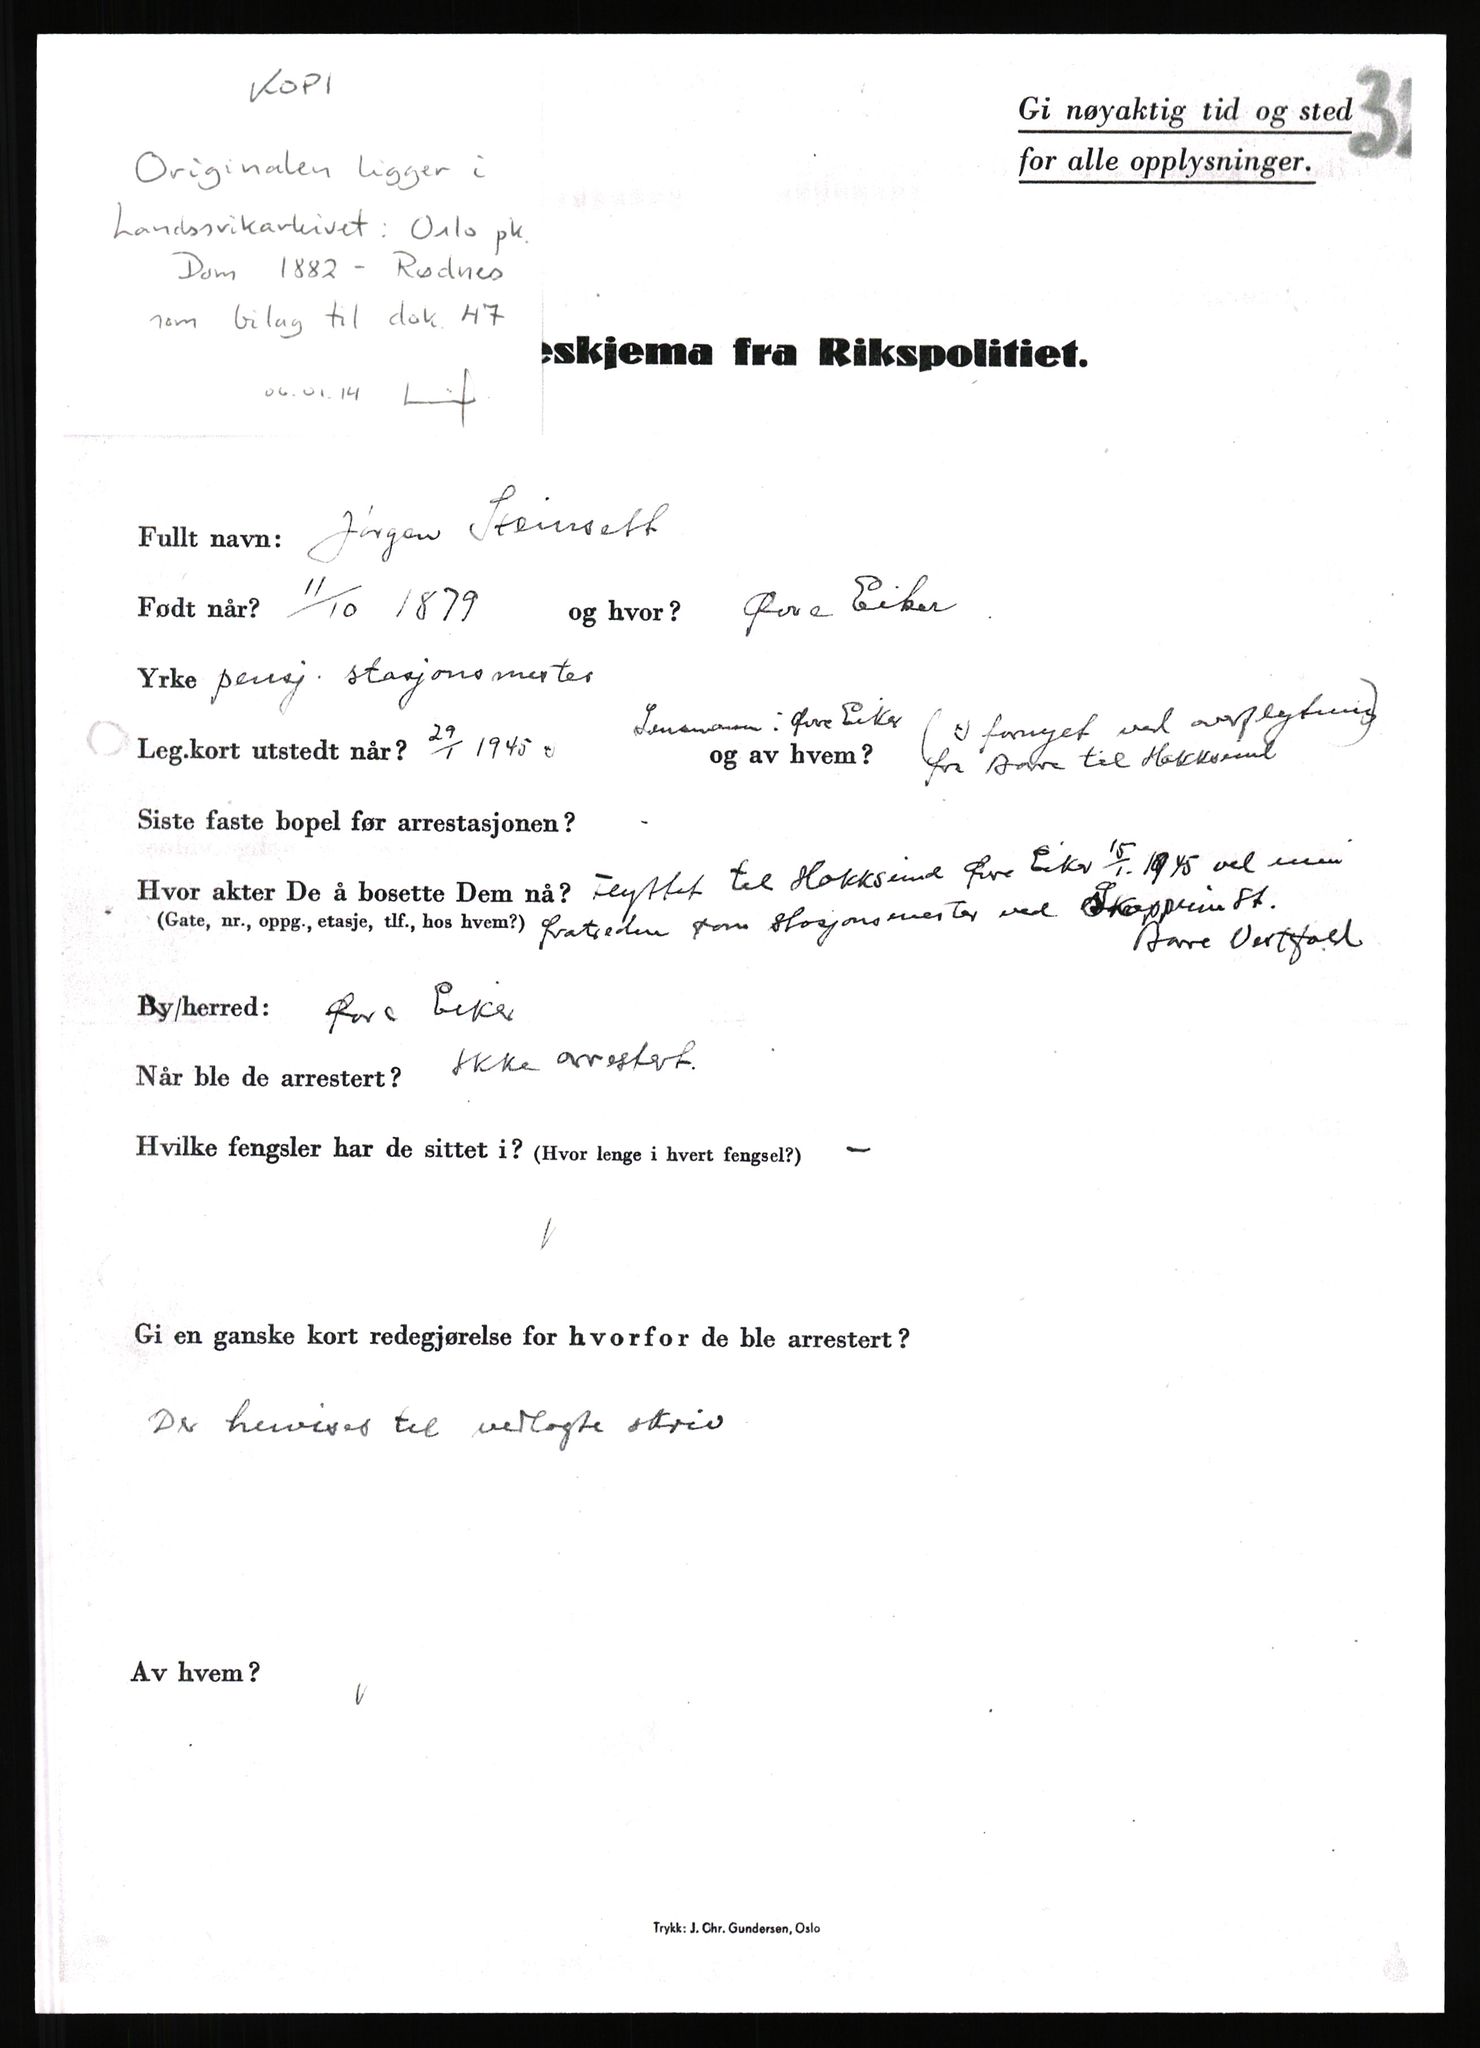 KOPI
Originalen ligger i
Landssvikarkivet: Oslo pk.
Dom 1882 - Rødnes
som bilag til dok. 47
06.01.14
Gi nøyaktig tid og sted
for alle opplysninger.
eskjema fra Rikspolitiet.
Fullt navn: Jörgen Steinsett
Født når? 11/10 1879 og hvor? Øvre Eiker
Yrke pensj. stasjonsmester
Leg.kort utstedt når? 29/1 1945 x) og av hvem? Lensmannen i Øvre Eiker (x) fornyet ved overflytning
fra Borre til Hokksund)
Siste faste bopel før arrestasjonen? -
Hvor akter De å bosette Dem nå? Flyttet til Hokksund Øvre Eiker 15/1. 1945 ved min
(Gate, nr., oppg., etasje, tlf., hos hvem?) fratreden som stasjonsmester ved Skoppum St.
Borre Vestfold
By/herred: Øvre Eiker
Når ble de arrestert? Ikke arrestert.
Hvilke fengsler har de sittet i? (Hvor lenge i hvert fengsel?) —
Gi en ganske kort redegjørelse for hvorfor de ble arrestert?
Der henvises til vedlagte skriv
Av hvem?
Trykk: J. Chr. Gundersen, Oslo